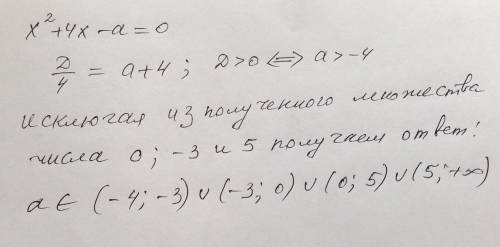 x²+4x-a=0
D/4 = a+4; D>0 <=> a>-4
исключая из полученного множества
числа 0; -3 и 5 получаем ответ:
a ∈ (-4; -3) ∪ (-3; 0) ∪ (0; 5) ∪ (5; +∞)